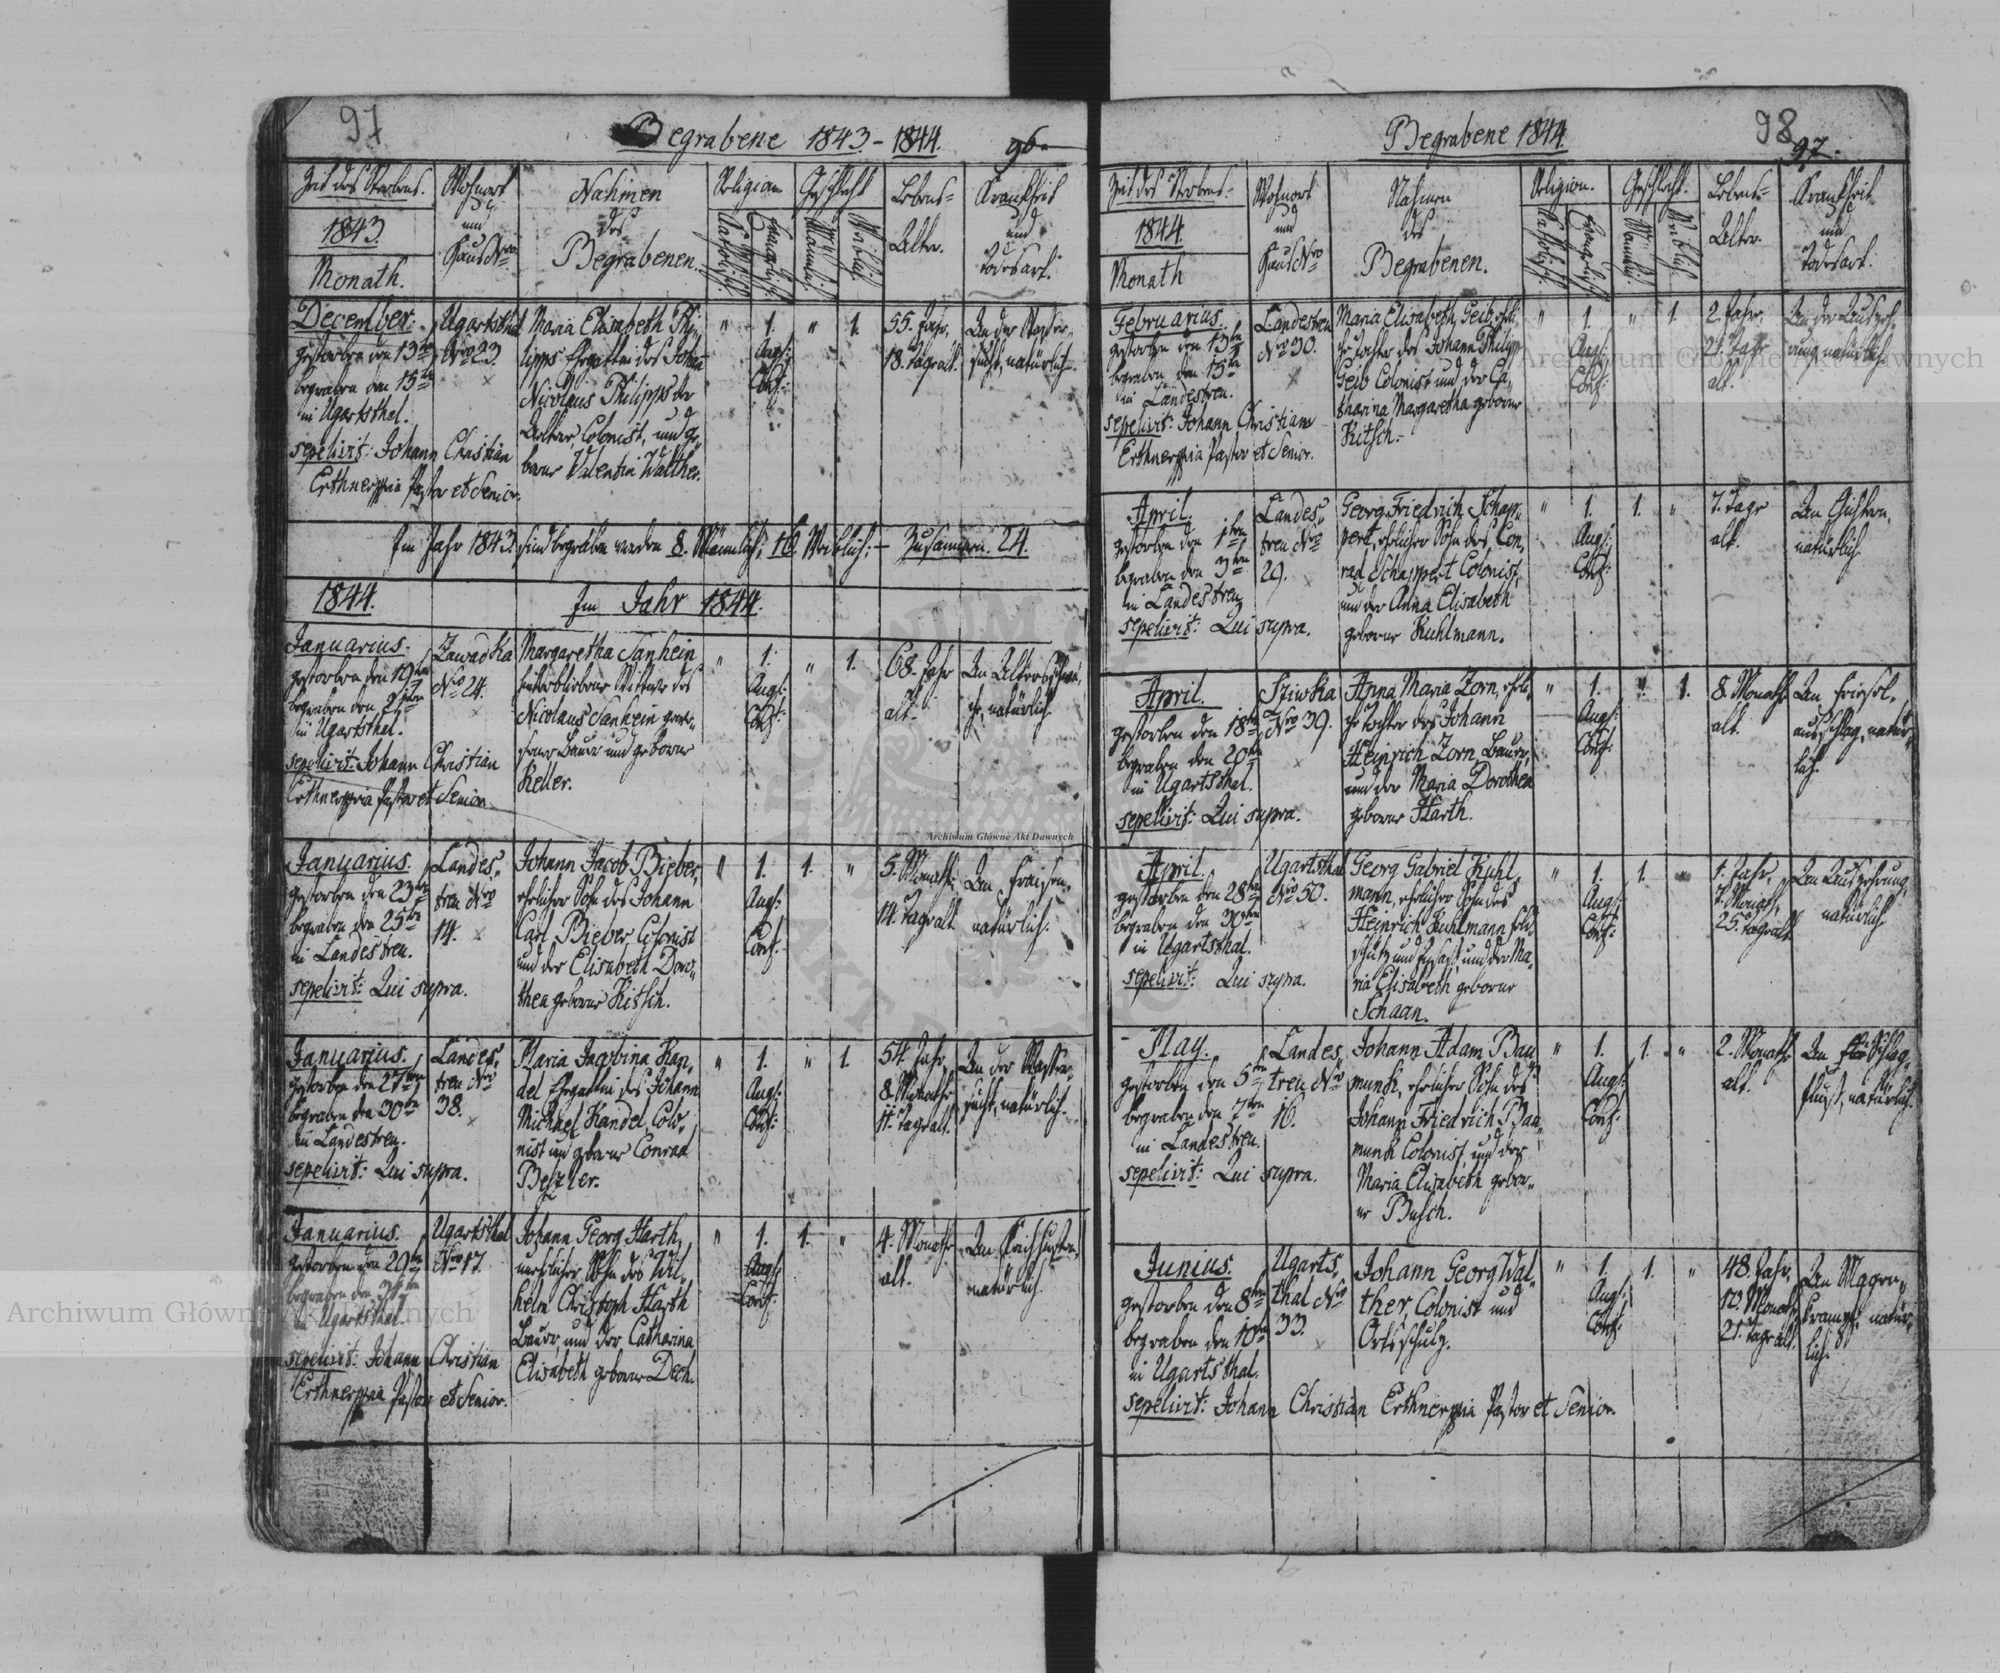 97
Begrabene 1843 - 1844.
96.
Zeit des Sterbens.
1843.
Monath.
Wohnort
und
Haus Nro
Nahmen
des
Begrabenen.
Religion
Katholisch
Evangelisch
Geschlecht
Männlich
Weiblich
Lebens=
Alter.
Krankheit
und
Todesart.
December.
gestorben den 13ten
begraben den 15ten
in Ugartsthal.
sepelivit: Johann Christian
Erthner Pastor et Senior.
Ugartsthal
Nro 23.
Maria Elisabeth Phi„
lipps Ehegattin des Johann
Nicolaus Philipps der
Aeltere, Colonist, und ge„
borne Valentin Walther.
" 1. " 1.
Augs:
Conf:
55. Jahr,
18. Tage alt.
An der Wasser„
sucht, natürlich.
Im Jahr 1843. sind begraben worden 8. Männlich; 16. Weiblich; Zusammen. 24.
1844. Im Jahr 1844.
Januarius.
gestorben den 19ten
begraben den 21ten
in Ugartsthal.
sepelivit: Johann Christian
Erthner Pastor et Senior.
Zawadka
Nro 24.
Margaretha Sanhein
hinterbliebene Wittwe des
Nicolaus Sanhein gewe„
sener Bauer und geborne
Keller.
" 1. " 1.
Augs:
Conf:
68. Jahr
alt.
An Altersschwä„
che, natürlich.
Archiwum Główne Akt Dawnych
Januarius.
gestorben den 23ten
begraben den 25ten
in Landestreu.
sepelivit: Qui supra.
Landes„
treu Nro
14.
Johann Jacob Bieber,
ehelicher Sohn des Johann
Carl Bieber, Colonist
und der Elisabeth Doro„
thea geborne Kitsch.
" 1. 1. "
Augs:
Conf:
5. Monath
14. Tage alt
An Fraisen,
natürlich.
Januarius.
gestorben den 27ten
begraben den 30ten
in Landestreu.
sepelivit: Qui supra.
Landes„
treu Nro
38.
Maria Jacobina Kan„
del Ehegattin des Johann
Michael Kandel, Colo„
nist und geborne Conrad
Betzler.
" 1. " 1.
Augs:
Conf:
54. Jahr,
8. Monathe
11. Tage alt.
An der Wasser„
sucht, natürlich.
Januarius.
gestorben den 29ten
begraben den 31ten
in Ugartsthal.
sepelivit: Johann Christian
Erthner Pastor et Senior.
Ugartsthal
Nro 17.
Johann Georg Harth,
unehelicher Sohn des Wil„
helm Christoph Harth
Bauer, und der Catharina
Elisabeth geborne Dech.
" 1. 1. "
Augs:
Conf:
4. Monath
alt.
Am Keichhusten,
natürlich.
98
97.
Begrabene 1844.
Zeit des Sterbens.
1844.
Monath
Wohnort
und
Haus Nro
Nahmen
des
Begrabenen.
Religion.
Katholisch
Evangelisch
Geschlecht.
Männlich
Weiblich
Lebens=
Alter.
Krankheit
und
Todesart.
Februarius.
gestorben den 13ten
begraben den 15ten
in Landestreu.
sepelivit: Johann Christian
Erthner Pastor et Senior.
Landestreu
Nro 30.
Maria Elisabeth Geib, eheli„
che Tochter des Johann Philipp
Geib Colonist und der Ca„
tharina Margaretha geborne
Kitsch.
" 1. " 1.
Augs:
Conf:
2. Jahr,
21. Tage
alt.
An der Auszeh„
rung, natürlich
April.
gestorben den 1ten
begraben den 3ten
in Landestreu
sepelivit: Qui supra.
Landes„
treu Nro
29.
Georg Friedrich Schap„
pert, ehelicher Sohn des Con„
rad Schappert Colonist,
und der Anna Elisabeth
geborne Kuhlmann.
" 1. 1. "
Augs:
Conf:
7. Tage
alt.
An Gichtern,
natürlich.
April.
gestorben den 18ten
begraben den 20ten
in Ugartsthal.
sepelivit: Qui supra.
Sziwka
Nro 39.
Anna Maria Zorn, eheli„
che Tochter des Johann
Heinrich Zorn, Bauer,
und der Maria Dorothea
geborne Harth.
" 1. " 1.
Augs:
Conf:
8. Monathe
alt.
An Friesel„
ausschlag, natür„
lich.
April.
gestorben den 28ten
begraben den 30ten
in Ugartsthal.
sepelivit: Qui supra.
Ugartsthal
Nro 50.
Georg Gabriel Kuhl„
mann, ehelicher Sohn des
Heinrich Kuhlmann Feld„
schütz und Insass, und der Ma„
ria Elisabeth geborne
Schaan.
" 1. 1. "
Augs:
Conf:
1. Jahr,
7. Monath,
25. Tage alt.
An Auszehrung,
natürlich
May.
gestorben den 5ten
begraben den 7ten
in Landestreu.
sepelivit: Qui supra.
Landes„
treu Nro
16.
Johann Adam Bau
munk, ehelicher Sohn des
Johann Friedrich Bau„
munk Colonist, und der
Maria Elisabeth gebor„
ne Busch.
" 1. 1. "
Augs:
Conf:
2. Monathe
alt.
Am Schlag„
fluss, natürlich.
Junius.
gestorben den 8ten
begraben den 10ten
in Ugartsthal.
sepelivit: Johann Christian Erthner Pastor et Senior.
Ugarts„
thal Nro
33.
Johann Georg Wal„
ther, Colonist und
Ortsschulz.
" 1. 1. "
Augs:
Conf:
48. Jahr,
10. Monath,
21. Tage alt.
An Magen„
krampf, natür„
lich.
Archiwum Główne Akt Dawnych
Archiwum Główne Akt Dawnych